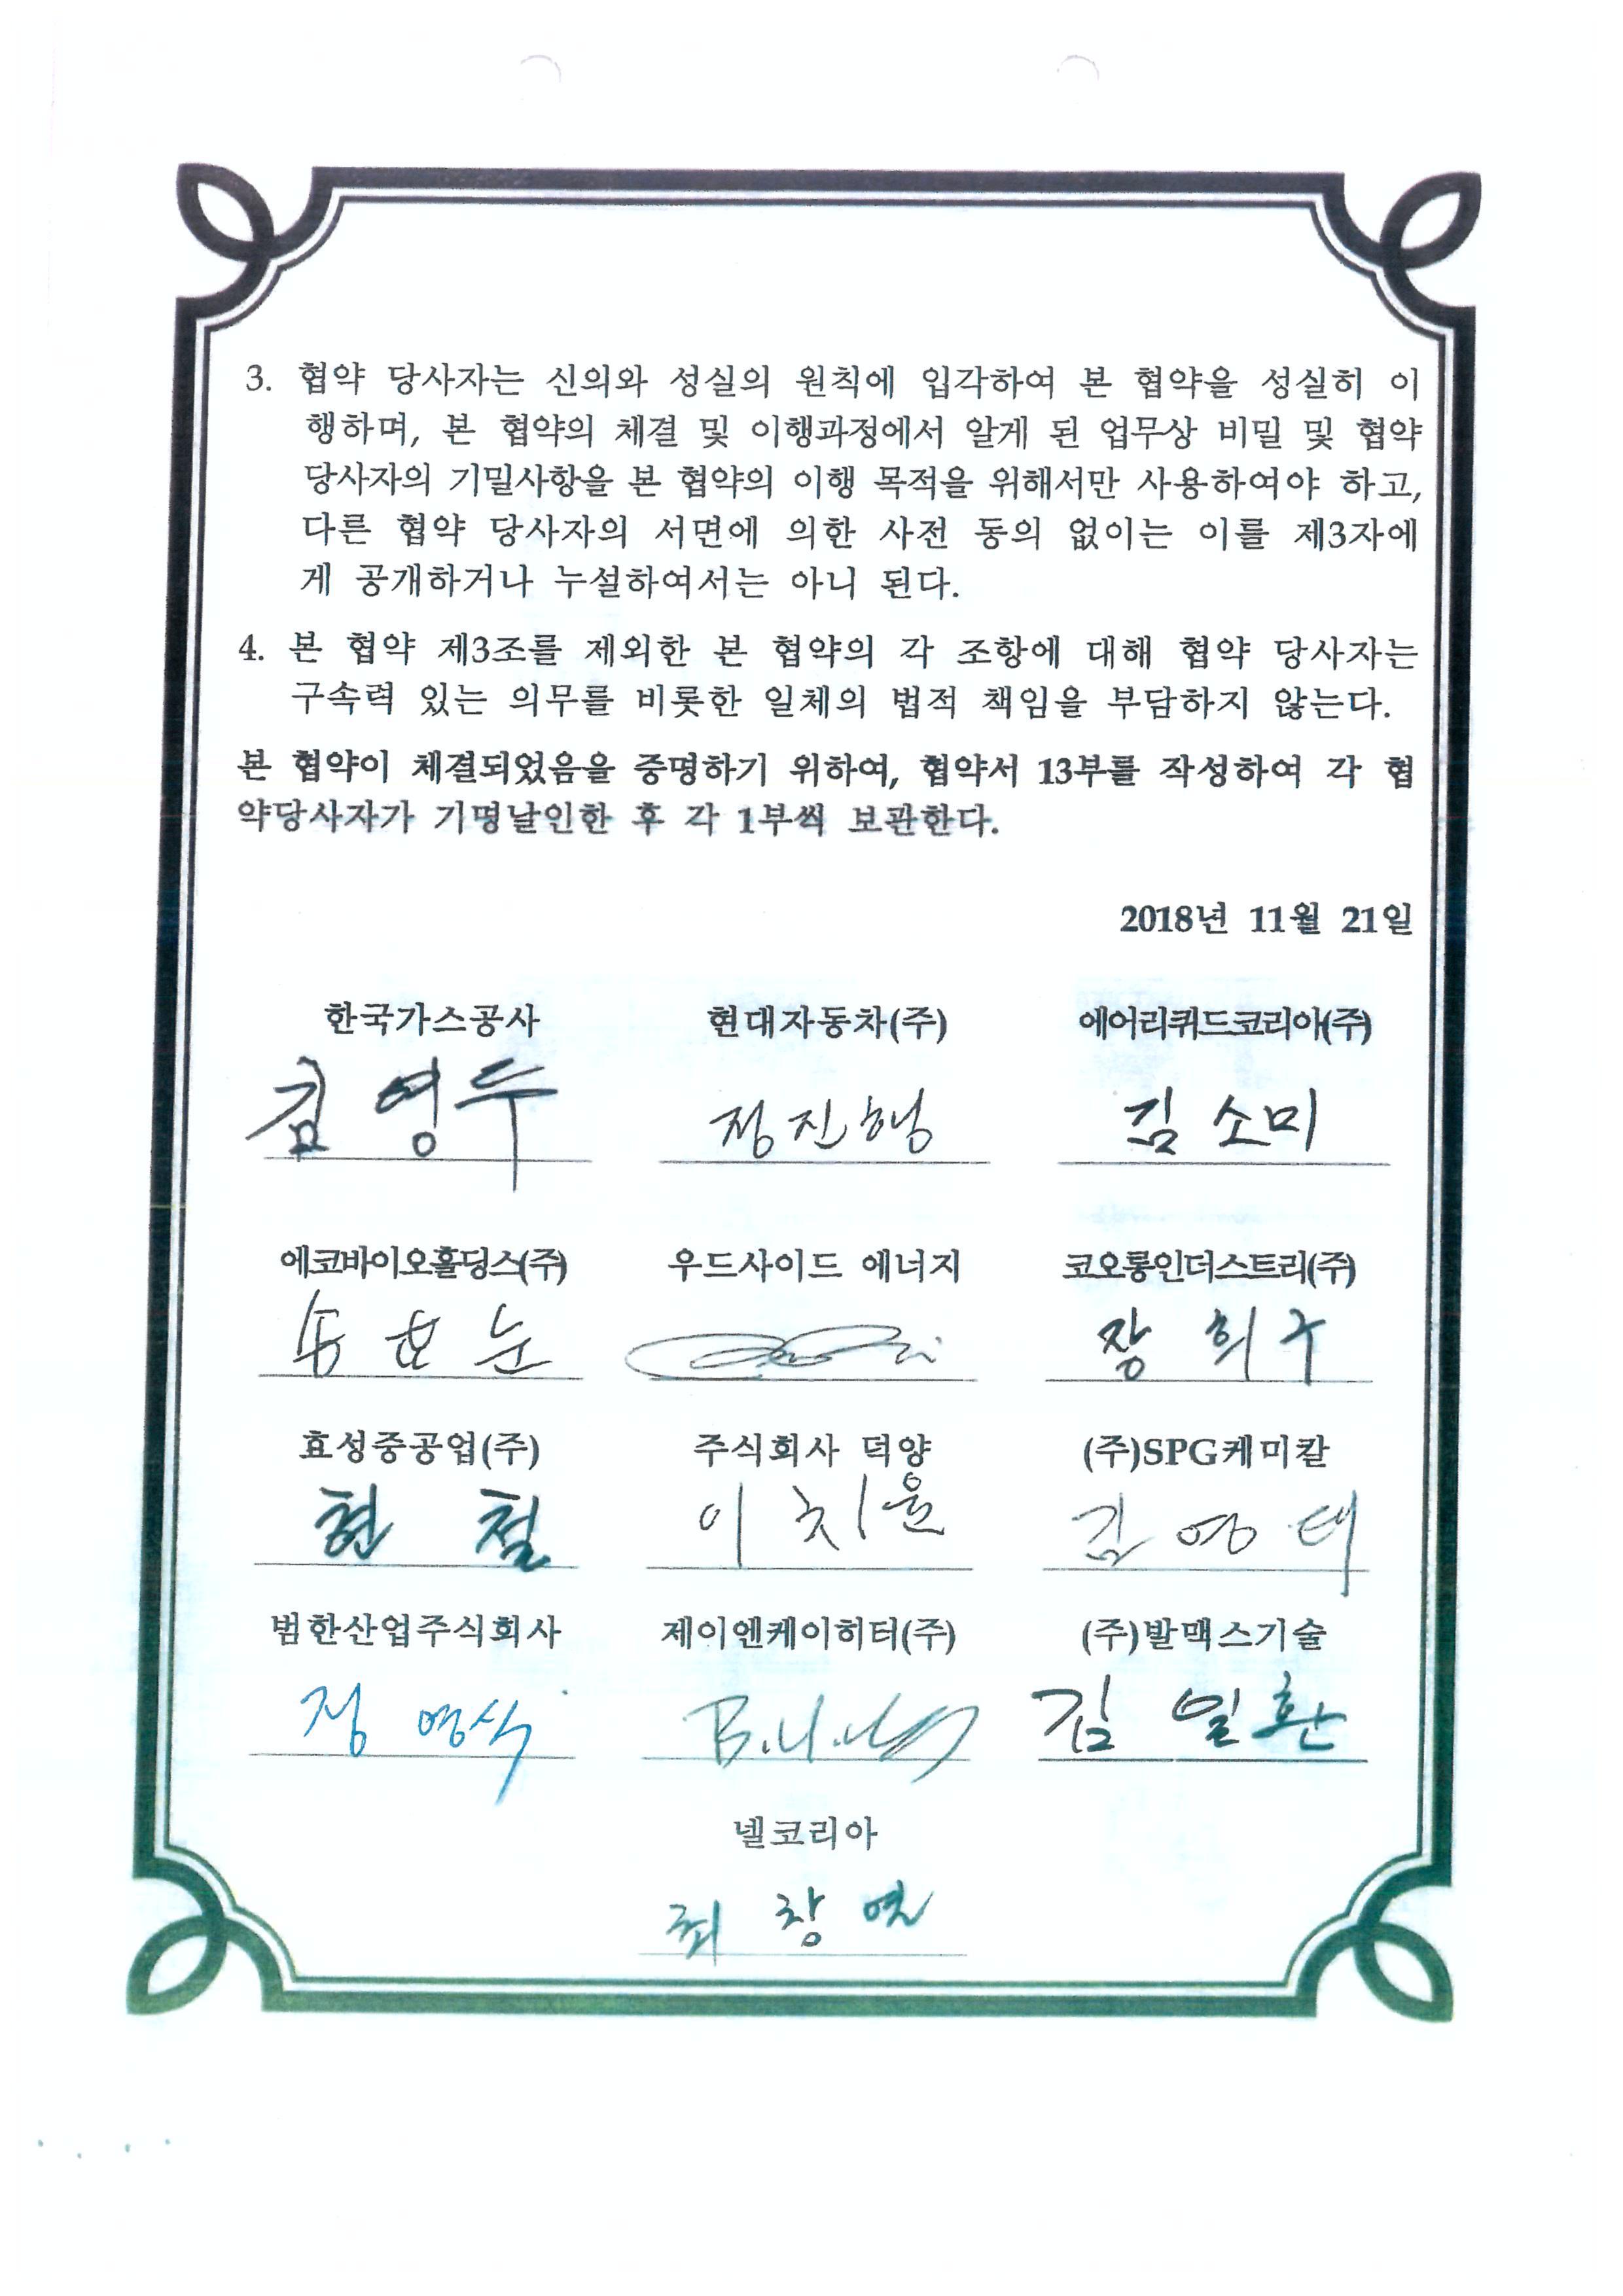 3. 협약 당사자는 신의와 성실의 원칙에 입각하여 본 협약을 성실히 이
행하며, 본 협약의 체결 및 이행과정에서 알게 된 업무상 비밀 및 협약
당사자의 기밀사항을 본 협약의 이행 목적을 위해서만 사용하여야 하고,
다른 협약 당사자의 서면에 의한 사전 동의 없이는 이를 제3자에
게 공개하거나 누설하여서는 아니 된다.
4. 본 협약 제3조를 제외한 본 협약의 각 조항에 대해 협약 당사자는
구속력 있는 의무를 비롯한 일체의 법적 책임을 부담하지 않는다.
본 협약이 체결되었음을 증명하기 위하여, 협약서 13부를 작성하여 각 협
약당사자가 기명날인한 후 각 1부씩 보관한다.
2018년 11월 21일
한국가스공사 현대자동차(주) 에어리퀴드코리아(주)
김영두 정진행 김소미
에코바이오홀딩스(주) 우드사이드 에너지 코오롱인더스트리(주)
장희구
효성중공업(주) 주식회사 덕양 (주)SPG케미칼
현철 이치윤 김영태
범한산업주식회사 제이엔케이히터(주) (주)발맥스기술
정영식 김일환
넬코리아
최창